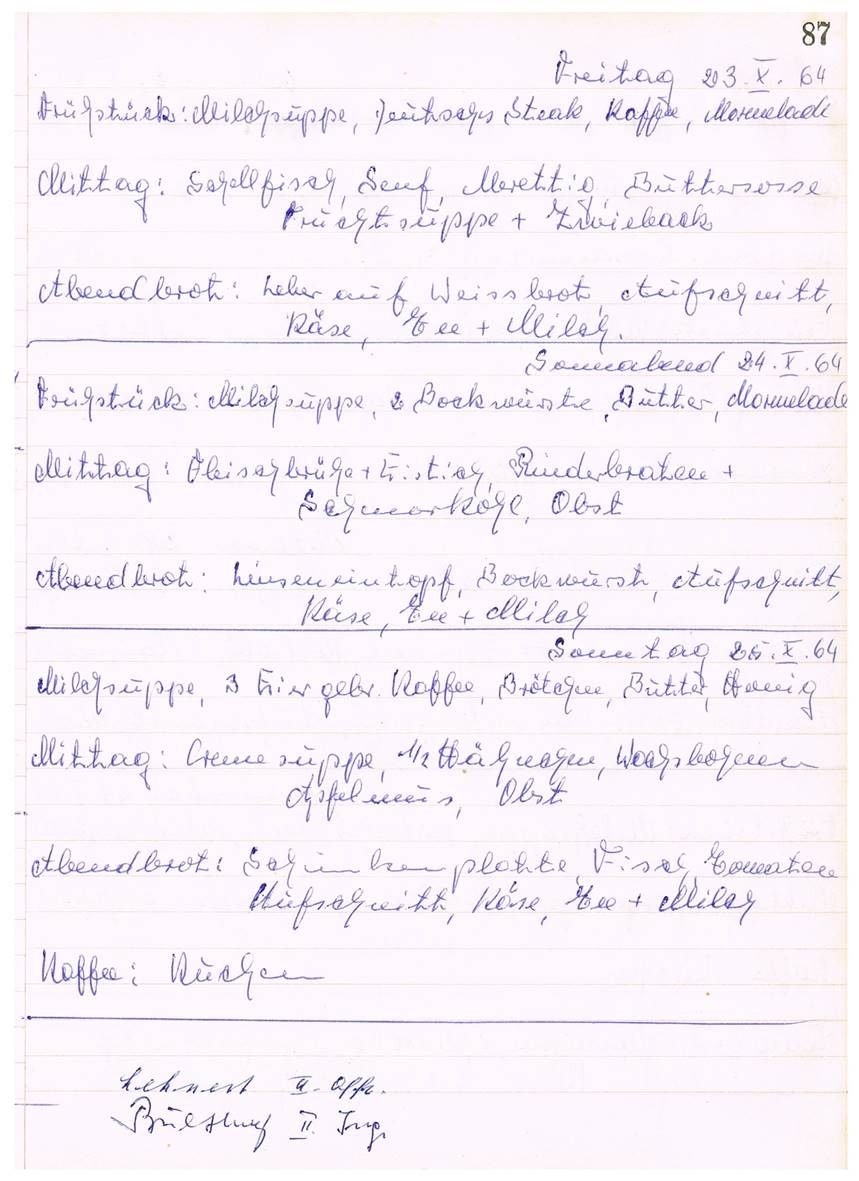 87
Freitag 23.X.64
Frühstück: Milchsuppe, Deutsches Steak, Kaffee, Marmelade
Mittag: Schellfisch, Senf, Merettig, Buttersosse
Fruchtsuppe + Zwieback
Abendbrot: Leber auf Weissbrot, Aufschnitt,
Käse, Tee + Milch.
Sonnabend 24.X.64
Frühstück: Milchsuppe, 2 Bockwürste, Butter, Marmelade
Mittag: Fleischbrühe + Eistich, Rinderbraten +
Schmorkohl, Obst
Abendbrot: Linseneintopf, Bockwurst, Aufschnitt,
Käse, Tee + Milch
Sonntag 25.X.64
Milchsuppe, 3 Eier gebr. Kaffee, Brötchen, Butter, Honig
Mittag: Cremesuppe, 1/2 Hähnchen, Wachsbohnen
Apfelmus, Obst
Abendbrot: Schinkenplatte, Fisch, Tomaten
Aufschnitt, Käse, Tee + Milch
Kaffee: Kuchen
Lehnert II. Offz.
II. Ing.